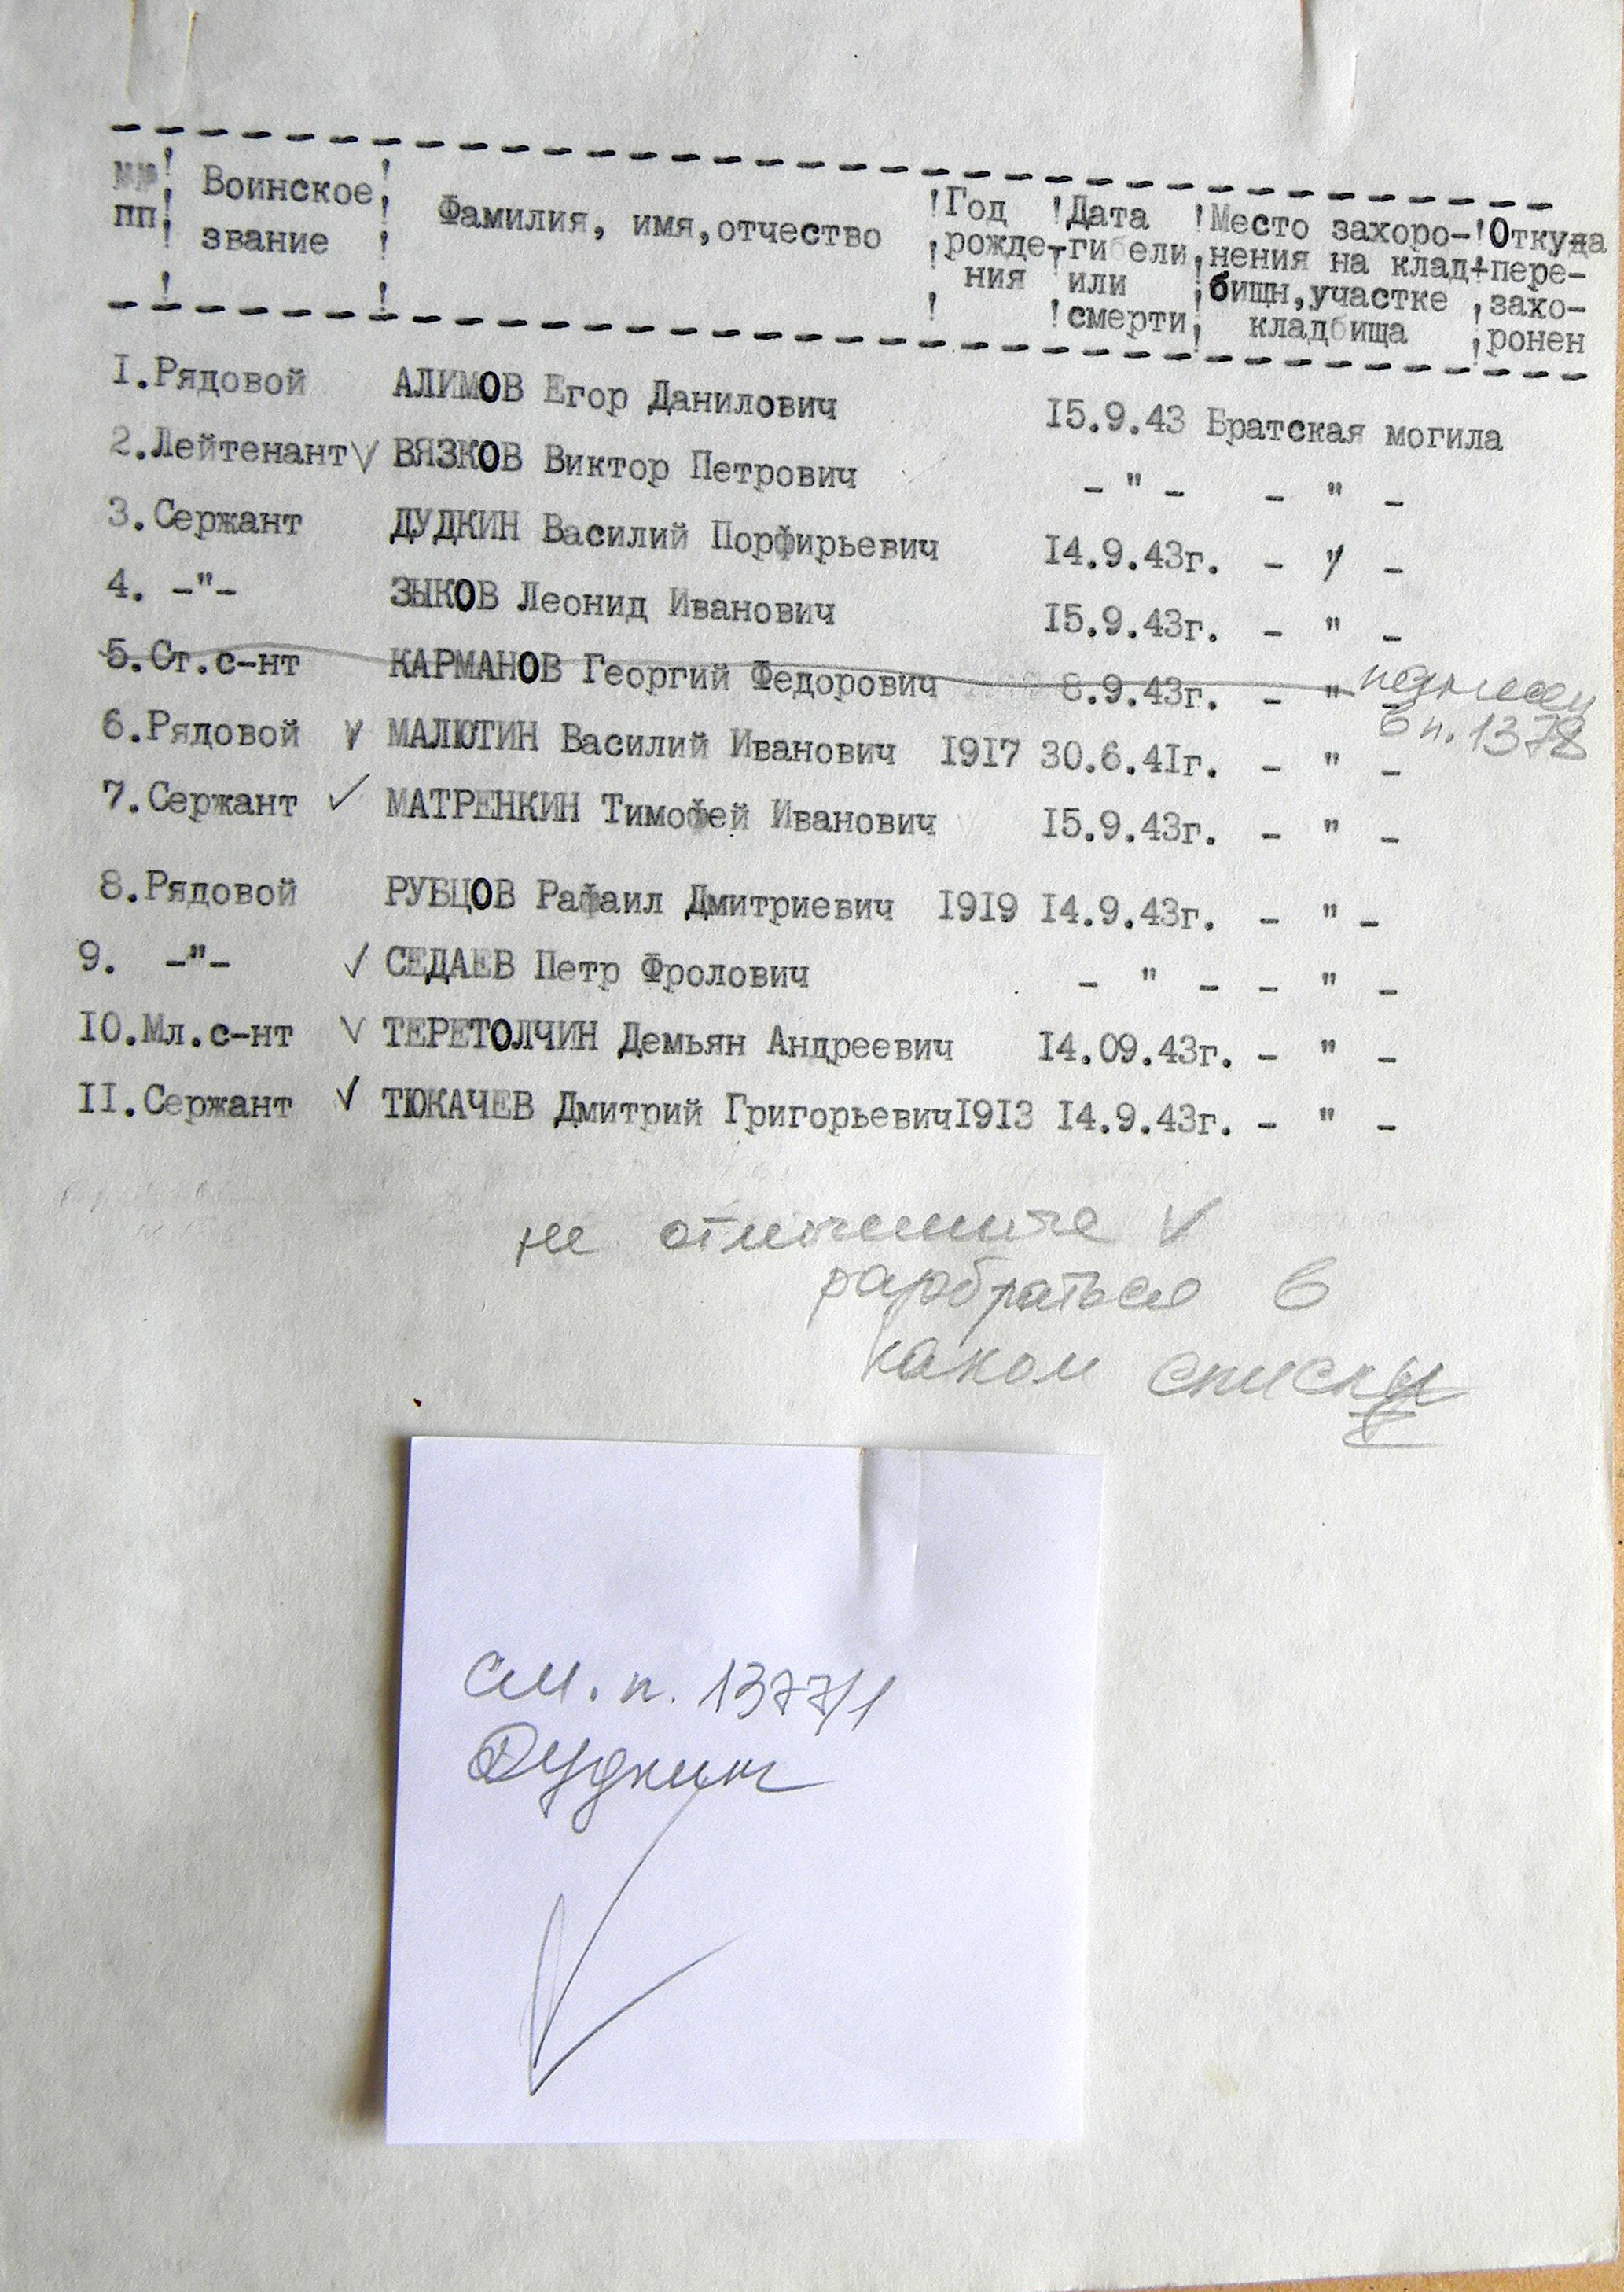 №№ ! Воинское ! Фамилия, имя, отчество ! Год ! Дата ! Место захоро- ! Откуда
пп ! звание ! рожде- гибели нения на клад- пере-
ния или бищн, участке захо-
смерти кладбища ронен
1. Рядовой АЛИМОВ Егор Данилович 15.9.43 Братская могила
2. Лейтенант V ВЯЗКОВ Виктор Петрович - " - - " -
3. Сержант ДУДКИН Василий Порфирьевич 14.9.43г. - " -
4. -"- ЗЫКОВ Леонид Иванович 15.9.43г. - " -
5. Ст.с-нт КАРМАНОВ Георгий Федорович 8.9.43г. - " -
в п. 1378
6. Рядовой V МАЛЮТИН Василий Иванович 1917 30.6.41г. - " -
7. Сержант V МАТРЕНКИН Тимофей Иванович 15.9.43г. - " -
8. Рядовой РУБЦОВ Рафаил Дмитриевич 1919 14.9.43г. - " -
9. -"- V СЕДАЕВ Петр Фролович - " - - " -
10. Мл.с-нт V ТЕРЕТОЛЧИН Демьян Андреевич 14.09.43г. - " -
11. Сержант V ТЮКАЧЕВ Дмитрий Григорьевич 1913 14.9.43г. - " -
не отмеченные V
разобраться в
каком списку
см. п. 1377/1
Дудкин